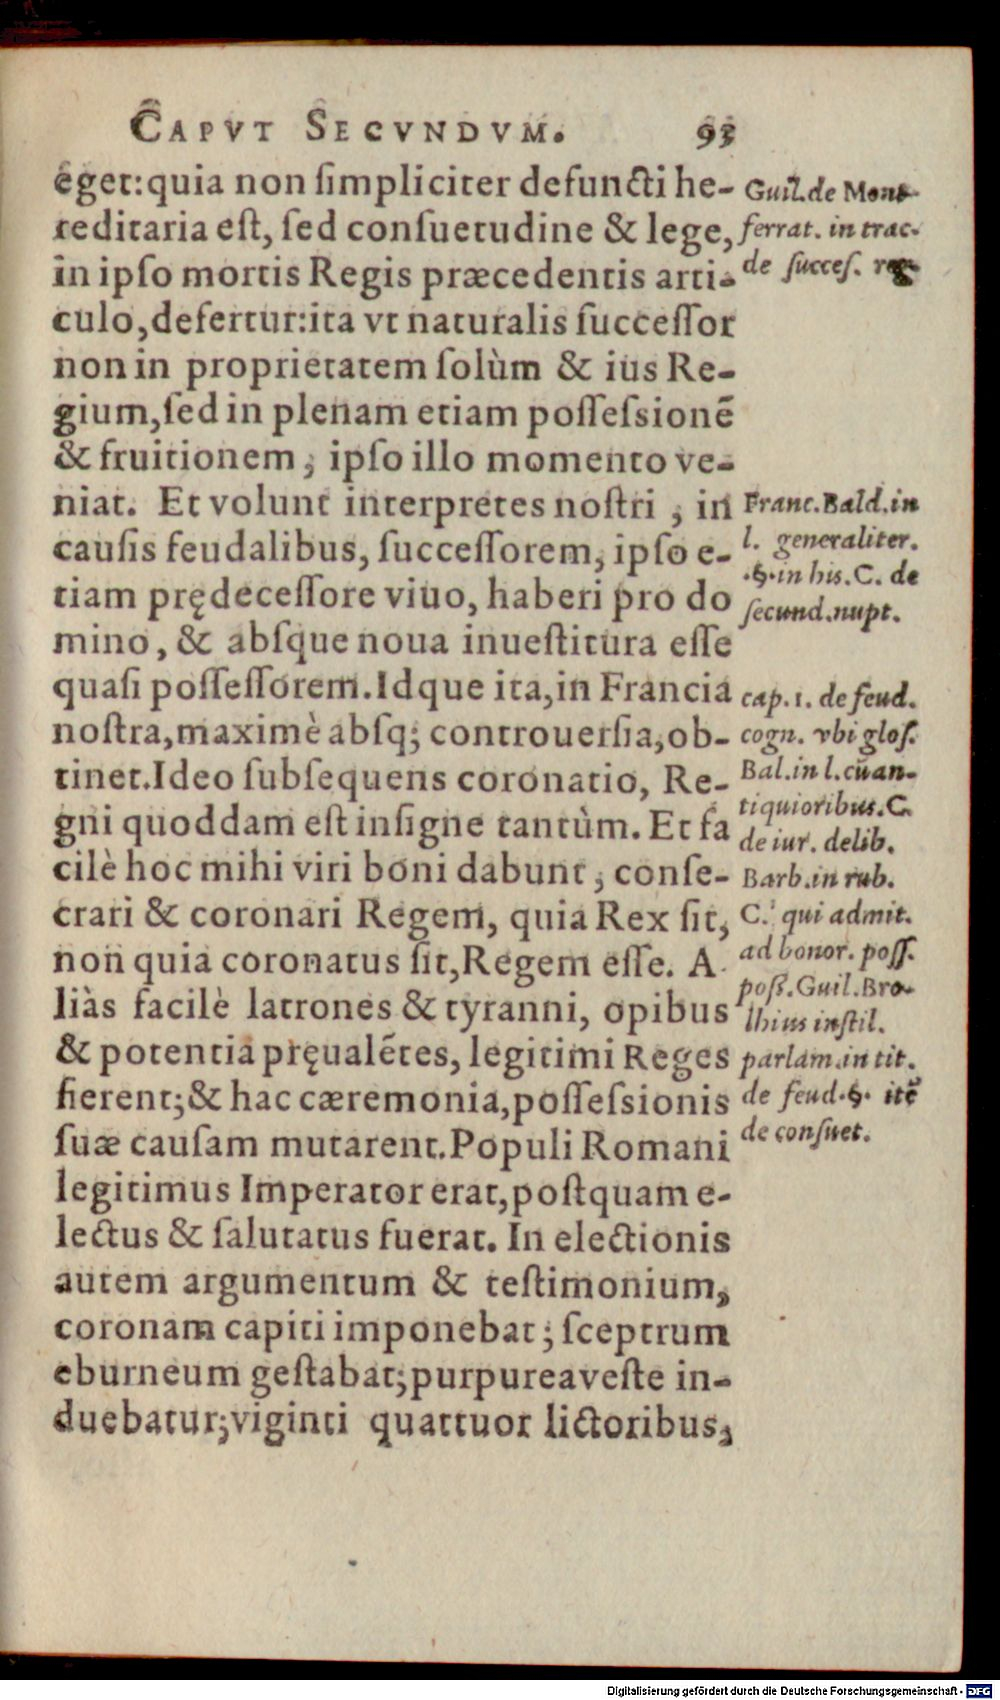 CAPVT SECVNDVM. 93
eget: quia non ſimpliciter defuncti he-
reditaria eſt, ſed conſuetudine & lege,
in ipſo mortis Regis præcedentis arti-
culo, defertur: ita vt naturalis ſucceſſor
non in proprietatem ſolùm & ius Re-
gium, ſed in plenam etiam poſſeſsionē
& fruitionem, ipſo illo momento ve-
niat. Et volunt interpretes noſtri, in
cauſis feudalibus, ſucceſſorem, ipſo e-
tiam prędeceſſore viuo, haberi pro do
mino, & abſque noua inueſtitura eſſe
quaſi poſſeſſorem. Idque ita, in Francia
noſtra, maximè abſq; controuerſia, ob-
tinet. Ideo ſubſequens coronatio, Re-
gni quoddam eſt inſigne tantùm. Et fa
cilè hoc mihi viri boni dabunt, conſe-
crari & coronari Regem, quia Rex ſit,
non quia coronatus ſit, Regem eſſe. A
liàs facilè latrones & tyranni, opibus
& potentia pręualētes, legitimi Reges
fierent; & hac cæremonia, poſſeſsionis
ſuæ cauſam mutarent. Populi Romani
legitimus Imperator erat, poſtquam e-
lectus & ſalutatus fuerat. In electionis
autem argumentum & teſtimonium,
coronam capiti imponebat; ſceptrum
eburneum geſtabat; purpurea veſte in-
duebatur; viginti quattuor lictoribus,
Guil. de Mont-
ferrat. in trac.
de ſucceſ. reg.
Franc. Bald. in
l. generaliter.
.§. in his. C. de
ſecund. nupt.
cap. 1. de feud.
cogn. vbi gloſ.
Bal. in l. cũ an-
tiquioribus. C.
de iur. delib.
Barb. in rub.
C. qui admit.
ad bonor. poſſ.
poß. Guil. Bro-
lhius in ſtil.
parlam. in tit.
de feud. §. itē
de conſuet.
Digitalisierung gefördert durch die Deutsche Forschungsgemeinschaft - DFG